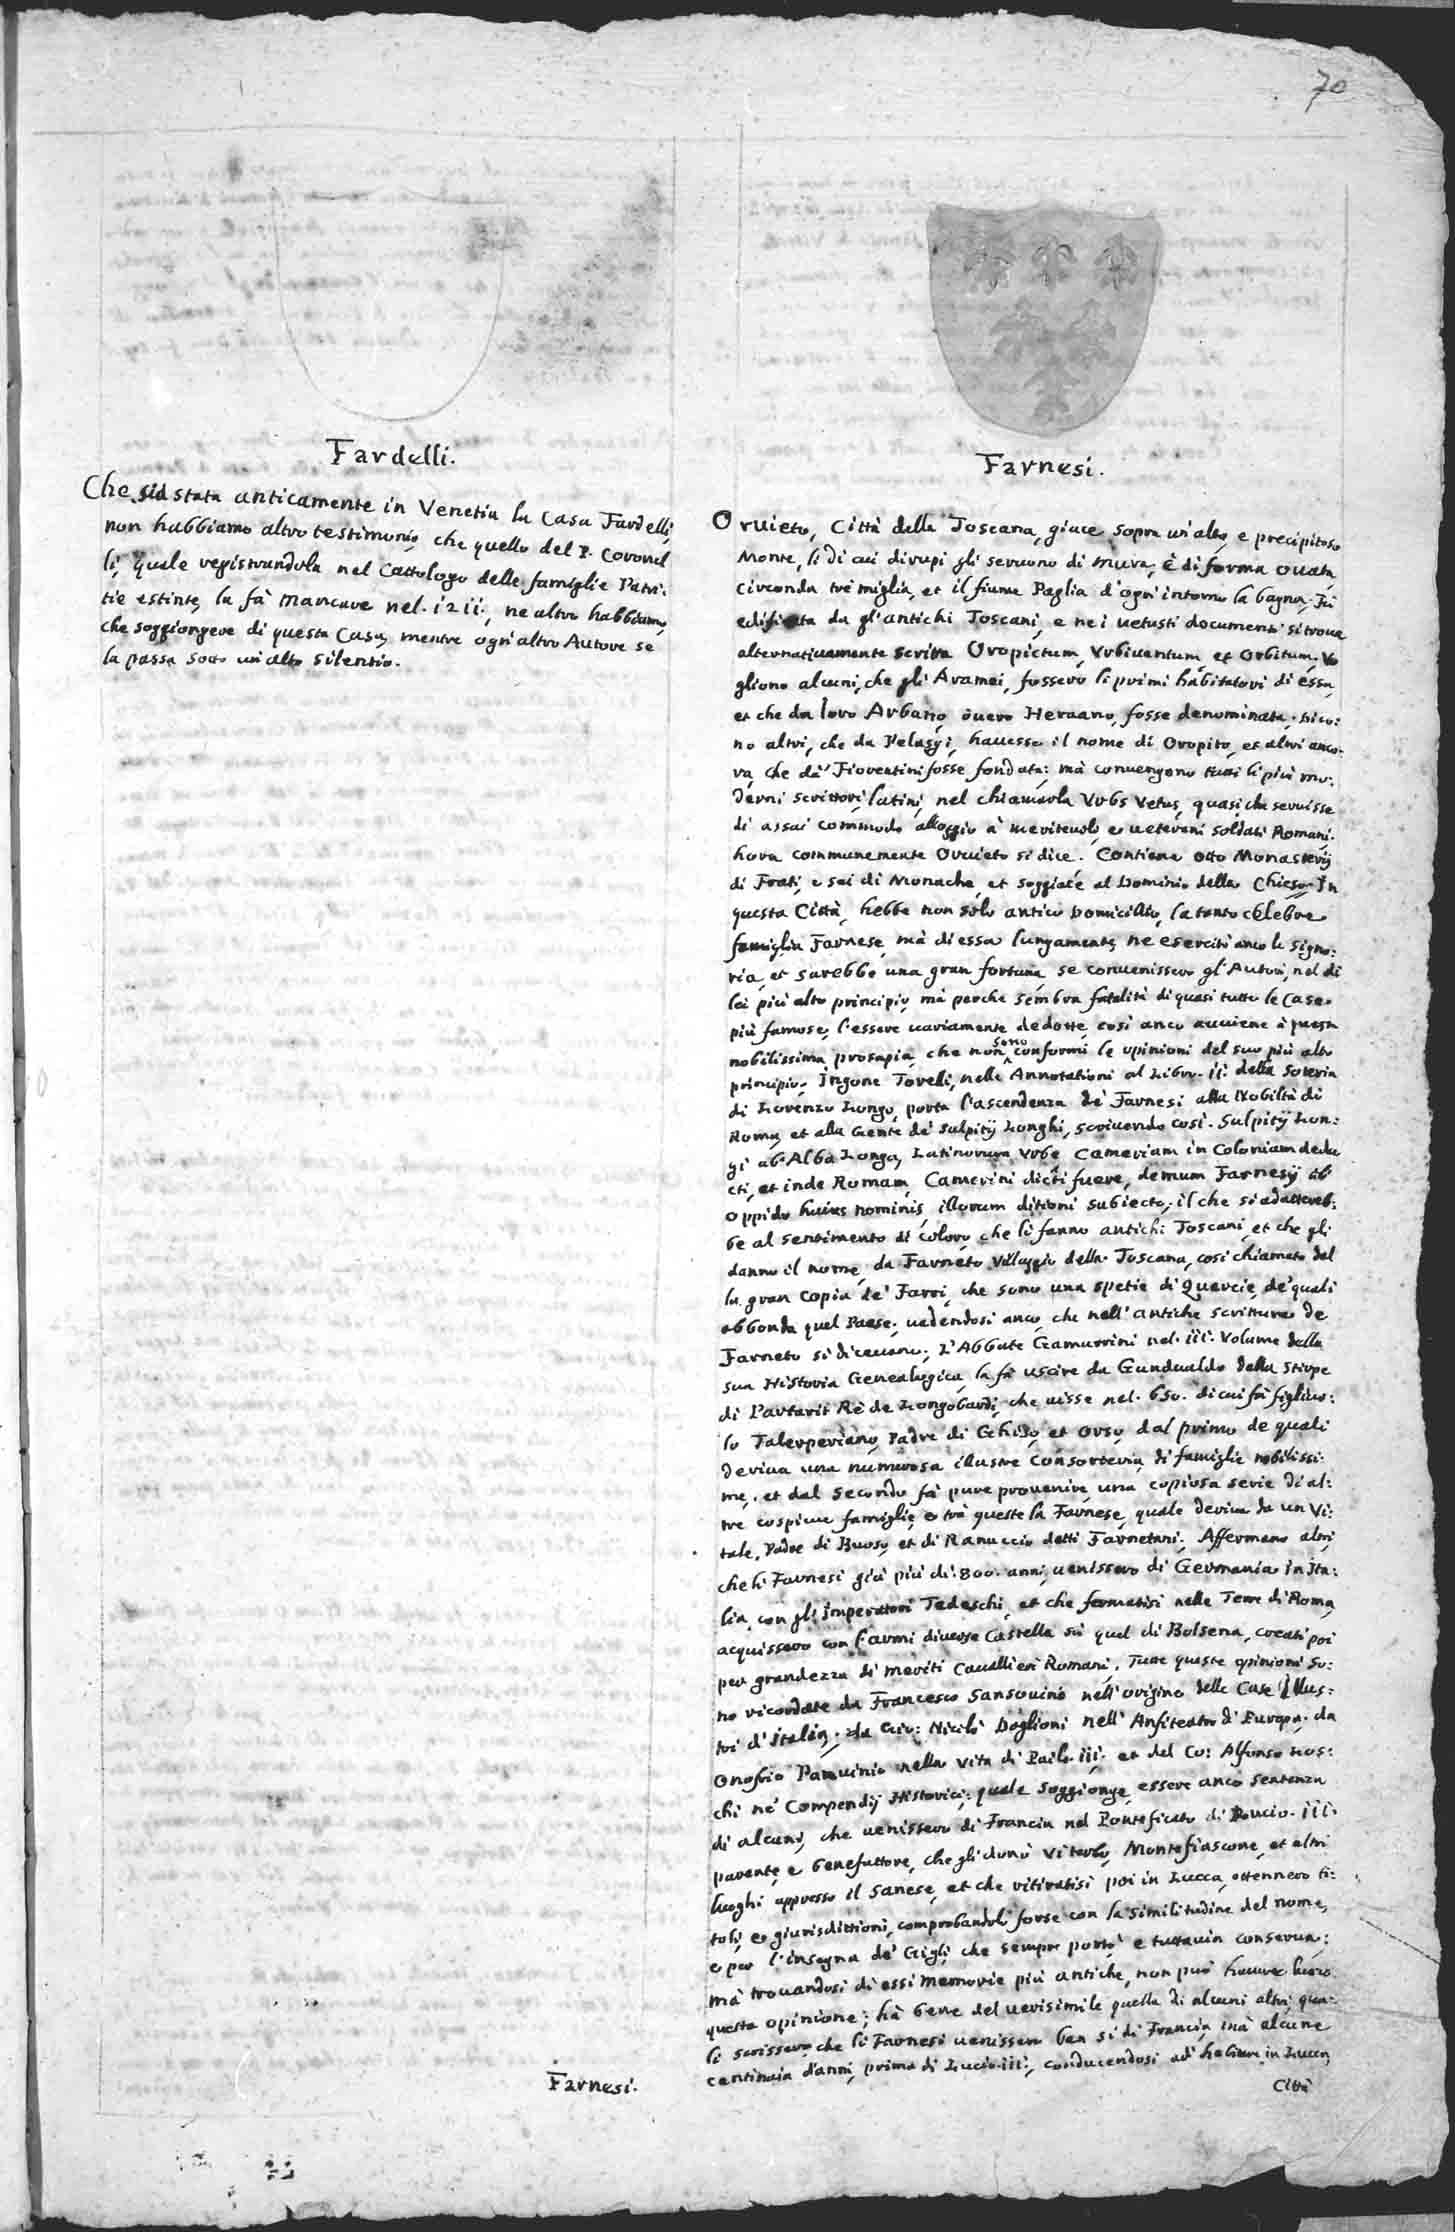 70
Fardelli.
Che sia stata anticamente in Venetia la Casa Fardelli,
non habbiamo altro testimonio, che quello del P. Coronel
li, quale registrandola nel Cattologo delle famiglie Patri:
tie estinte, la fà mancare nel. 1211., ne altro habbiamo,
che soggiongere di questa Casa, mentre ogn'altro Autore se
la passa sotto un'alto silentio.
Farnesi.
Farnesi.
Oruieto, Città della Toscana, giace sopra un'alto, e precipitoso
Monte, li di cui dirupi gli seruono di mura, è di forma ouata
circonda trè miglia, et il fiume Paglia d'ogn'intorno la bagna. Fù
edificata da gl'antichi Toscani, e nei uetusti documenti si troua
alternatiuamente scritta Oropictum, Vrbiuentum, et Orbitum. Vo
gliono alcuni, che gli Aramei, fossero li primi habitatori di essa,
et che da loro Arbano, ouero Heruano, fosse denominata. Dico:
no altri, che da Pelasgi, hauesse il nome di Oropito, et altri anco:
ra, che da' Fiorentini fosse fondata: mà conuengono tutti li più mo:
derni scrittori latini, nel chiamarla Vrbs Vetus, quasi che seruisse
di assai commodo alloggio à meriteuoli, e ueterani soldati Romani.
hora communemente Oruieto si dice. Contiene otto Monasterij
di Frati, e sei di Monache, et soggiace al Dominio della Chiesa. In
questa Città, hebbe non solo antico Domicilio, la tanto celebre
famiglia Farnese, mà di essa lungamente, ne esercitò anco la Signo:
ria, et sarebbe una gran fortuna se conuenissero gl'Autori, nel di
lei più alto principio, mà perche sembra fatalità di quasi tutte le Case
più famose, l'essere uariamente dedotte, così anco auuiene à questa
nobilissima prosapia, che non sono conformi le opinioni del suo più alto
principio. Ingone Torelli, nelle Annotationi al Libro. ii. della Soteria
di Lorenzo Longo, porta l'ascendenza de' Farnesi alla Nobiltà di
Roma, et alla Gente de' Sulpitij Longhi, scriuendo così. Sulpitij Lon:
gi ab Alba Longa, Latinorum Vrbe Cameriam in Coloniam dedu
cti, et inde Romam, Camerini dicti fuere, demum Farnesij ab
oppido huius nominis, illorum ditioni subiecto; il che si adattereb:
be al sentimento di coloro, che li fanno antichi Toscani, et che gli
danno il nome, da Farneto Villaggio della Toscana, così chiamato dal
la gran copia de' Farni, che sono una spetie di Quercie, de' quali
abbonda quel Paese; uedendosi anco, che nell'antiche scritture de
Farneto si diceuano; L'Abbate Gamurrini nel. iii. Volume della
sua Historia Genealogica, la fà uscire da Gundualdo della Stirpe
di Partarit Rè de Longobardi, che uisse nel. 650. di cui fù figliuo:
lo Talesperiano, Padre di Ghido, et Orso, dal primo de quali
deriua una numerosa illustre Consorteria di famiglie nobilissi:
me, et dal secondo fà pure prouenire, una copiosa serie di al:
tre cospicue famiglie, e trà queste la Farnese, quale deriua da un Vi:
tale, Padre di Buoso, et di Ranuccio detti Farnetani. Affermano altri
che li Farnesi già più di. 800. anni, uenissero di Germania in Ita:
lia, con gli Imperatori Tedeschi, et che fermatisi nelle Terre di Roma,
acquissero con l'armi diuerse Castella sù quel di Bolsena, creati poi
per grandezza di meriti Cauallieri Romani. Tutte queste opinioni so:
no ricordate da Francesco Sansouino nell'origine delle Case Illus:
tri d'Italia; da Gio: Nicolò Doglioni nell'Anfiteatro d'Europa; da
Onofrio Panuinio nella Vita di Paolo. iii. et del Co: Alfonso Los:
chi ne' Compendij Historici; quale soggionge, essere anco sentenza
di alcuni, che uenissero di Francia nel Ponteficato di Lucio. iii.
parente, e benefattore, che gli donò Viterbo, Montefiascone, et altri
luoghi appresso il Sanese, et che ritiratisi poi in Lucca, ottennero ti:
toli, e giurisdittioni, comprobandoli forse con la similitudine del nome,
e per l'insegna de' Gigli, che sempre portò e tuttauia conserua;
mà trouandosi di essi memorie più antiche, non può hauer luoco
questa opinione; hà bene del uerisimile quella di alcuni altri, qua:
li scrissero, che li Farnesi uenissero ben si di Francia, mà alcune
centinaia d'anni, prima di Lucio. iii., conducendosi ad habitare in Lucca,
Città